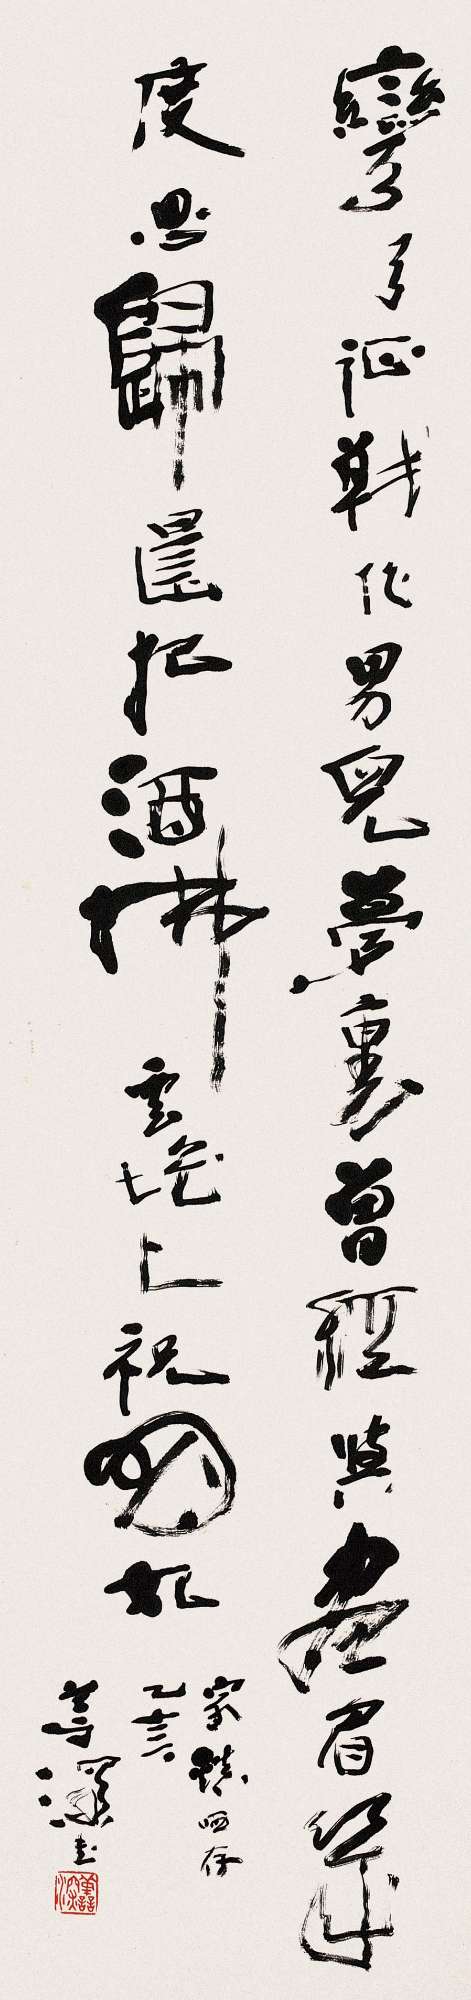 彎弓征戰作男兒夢裏曾經與畫眉幾
度思歸還把酒拂雲堆上祝明妃
家 哂存
乙亥
善深書
善深